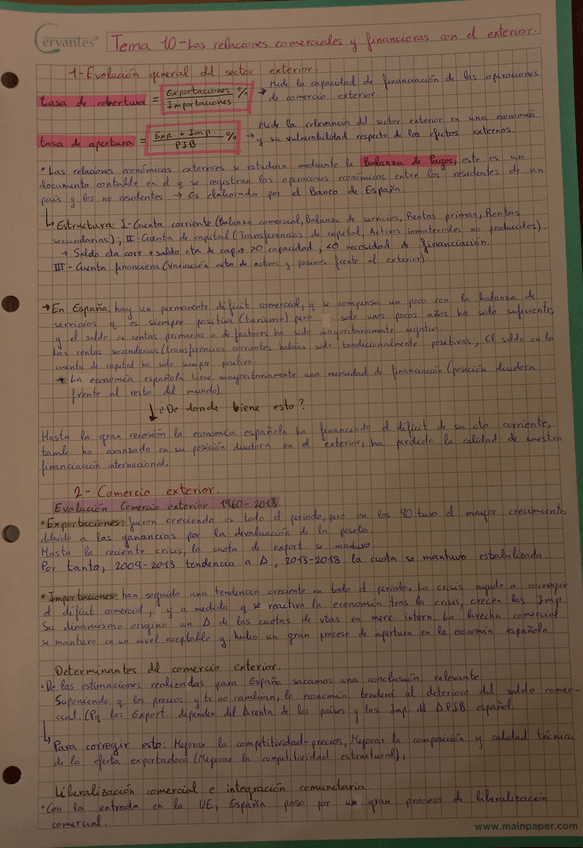 Cervantes
Tema 10 - Las relaciones comerciales y financieras con el exterior.
1- Evolución general del sector exterior.
tasa de cobertura = Exportaciones / Importaciones % → Mide la capacidad de financiación de las operaciones
de comercio exterior.
tasa de apertura = Exp. + Imp. / PIB % → Mide la relevancia del sector exterior en una economía
y su vulnerabilidad respecto de los efectos externos.
• Las relaciones económicas exteriores se estudian mediante la Balanza de Pagos, este es un
documento contable en el q se registran las operaciones económicas entre los residentes de un
país y los no residentes → Es elaborado por el Banco de España.
↳ Estructura: I - Cuenta corriente (Balanza comercial, Balanza de servicios, Rentas primas, Rentas
secundarias), II - Cuenta de capital (Transferencias de capital, Activos inmateriales no producidos).
→ Saldo cta corr + saldo cta de cap → >0 capacidad, <0 necesidad de financiación.
III - Cuenta financiera (Variación neta de activos y pasivos frente al exterior)
→ En España: hay un permanente déficit comercial, y se compensa un poco con la balanza de
servicios q es siempre positiva (turismo) pero solo unos pocos años ha sido suficiente,
y el saldo en rentas primarias o de factores ha sido mayoritariamente negativo.
Las rentas secundarias (transferencias corrientes) habían sido tradicionalmente positivas, El saldo en la
cuenta de capital ha sido siempre positivo.
→ La economía española tiene mayoritariamente una necesidad de financiación (posición deudora
frente al resto del mundo).
↓ ¿De donde biene esto?
Hasta la gran recesión la economía española ha financiado el déficit de su cta corriente,
tamb ha avanzado en su posición deudora en el exterior, ha perdido la calidad de nuestra
financiación internacional.
2- Comercio exterior.
Evolución Comercio exterior 1960-2018
• Exportaciones: fueron creciendo en todo el periodo, pero en los 90 tuvo el mayor crecimiento
debido a las ganancias por la devaluación de la peseta.
Hasta la reciente crisis, la cuota de export se mantuvo.
Por tanto, 2009-2013 tendencia a Δ, 2013-2018 la cuota se mantuvo estabilizada.
• Importaciones: han seguido una tendencia creciente en todo el periodo. La crisis ayudo a corregir
el déficit comercial, y a medida q se reactiva la economía tras la crisis, crecen las Imp.
Su dinamismo origino un Δ de las cuotas de vtas en merc intern. La brecha comercial
se mantuvo en un nivel aceptable y hubo un gran proceso de apertura en la economía española.
Determinantes del comercio exterior.
• De las estimaciones realizadas para España sacamos una conclusión relevante
Suponiendo q los precios y tc no cambian, la economía tenderá al deterioro del saldo comer-
cial. (Pq los Export. dependen del Δrenta de los países y las Imp. del ΔPIB español.
↳ Para corregir esto: Mejorar la competitividad-precios, Mejorar la composición y calidad técnica
de la oferta exportadora (Mejorar la competitividad estructural).
Liberalización comercial e integración comunitaria.
• Con la entrada en la UE, España paso por un gran proceso de liberalización
comercial.
www.mainpaper.com